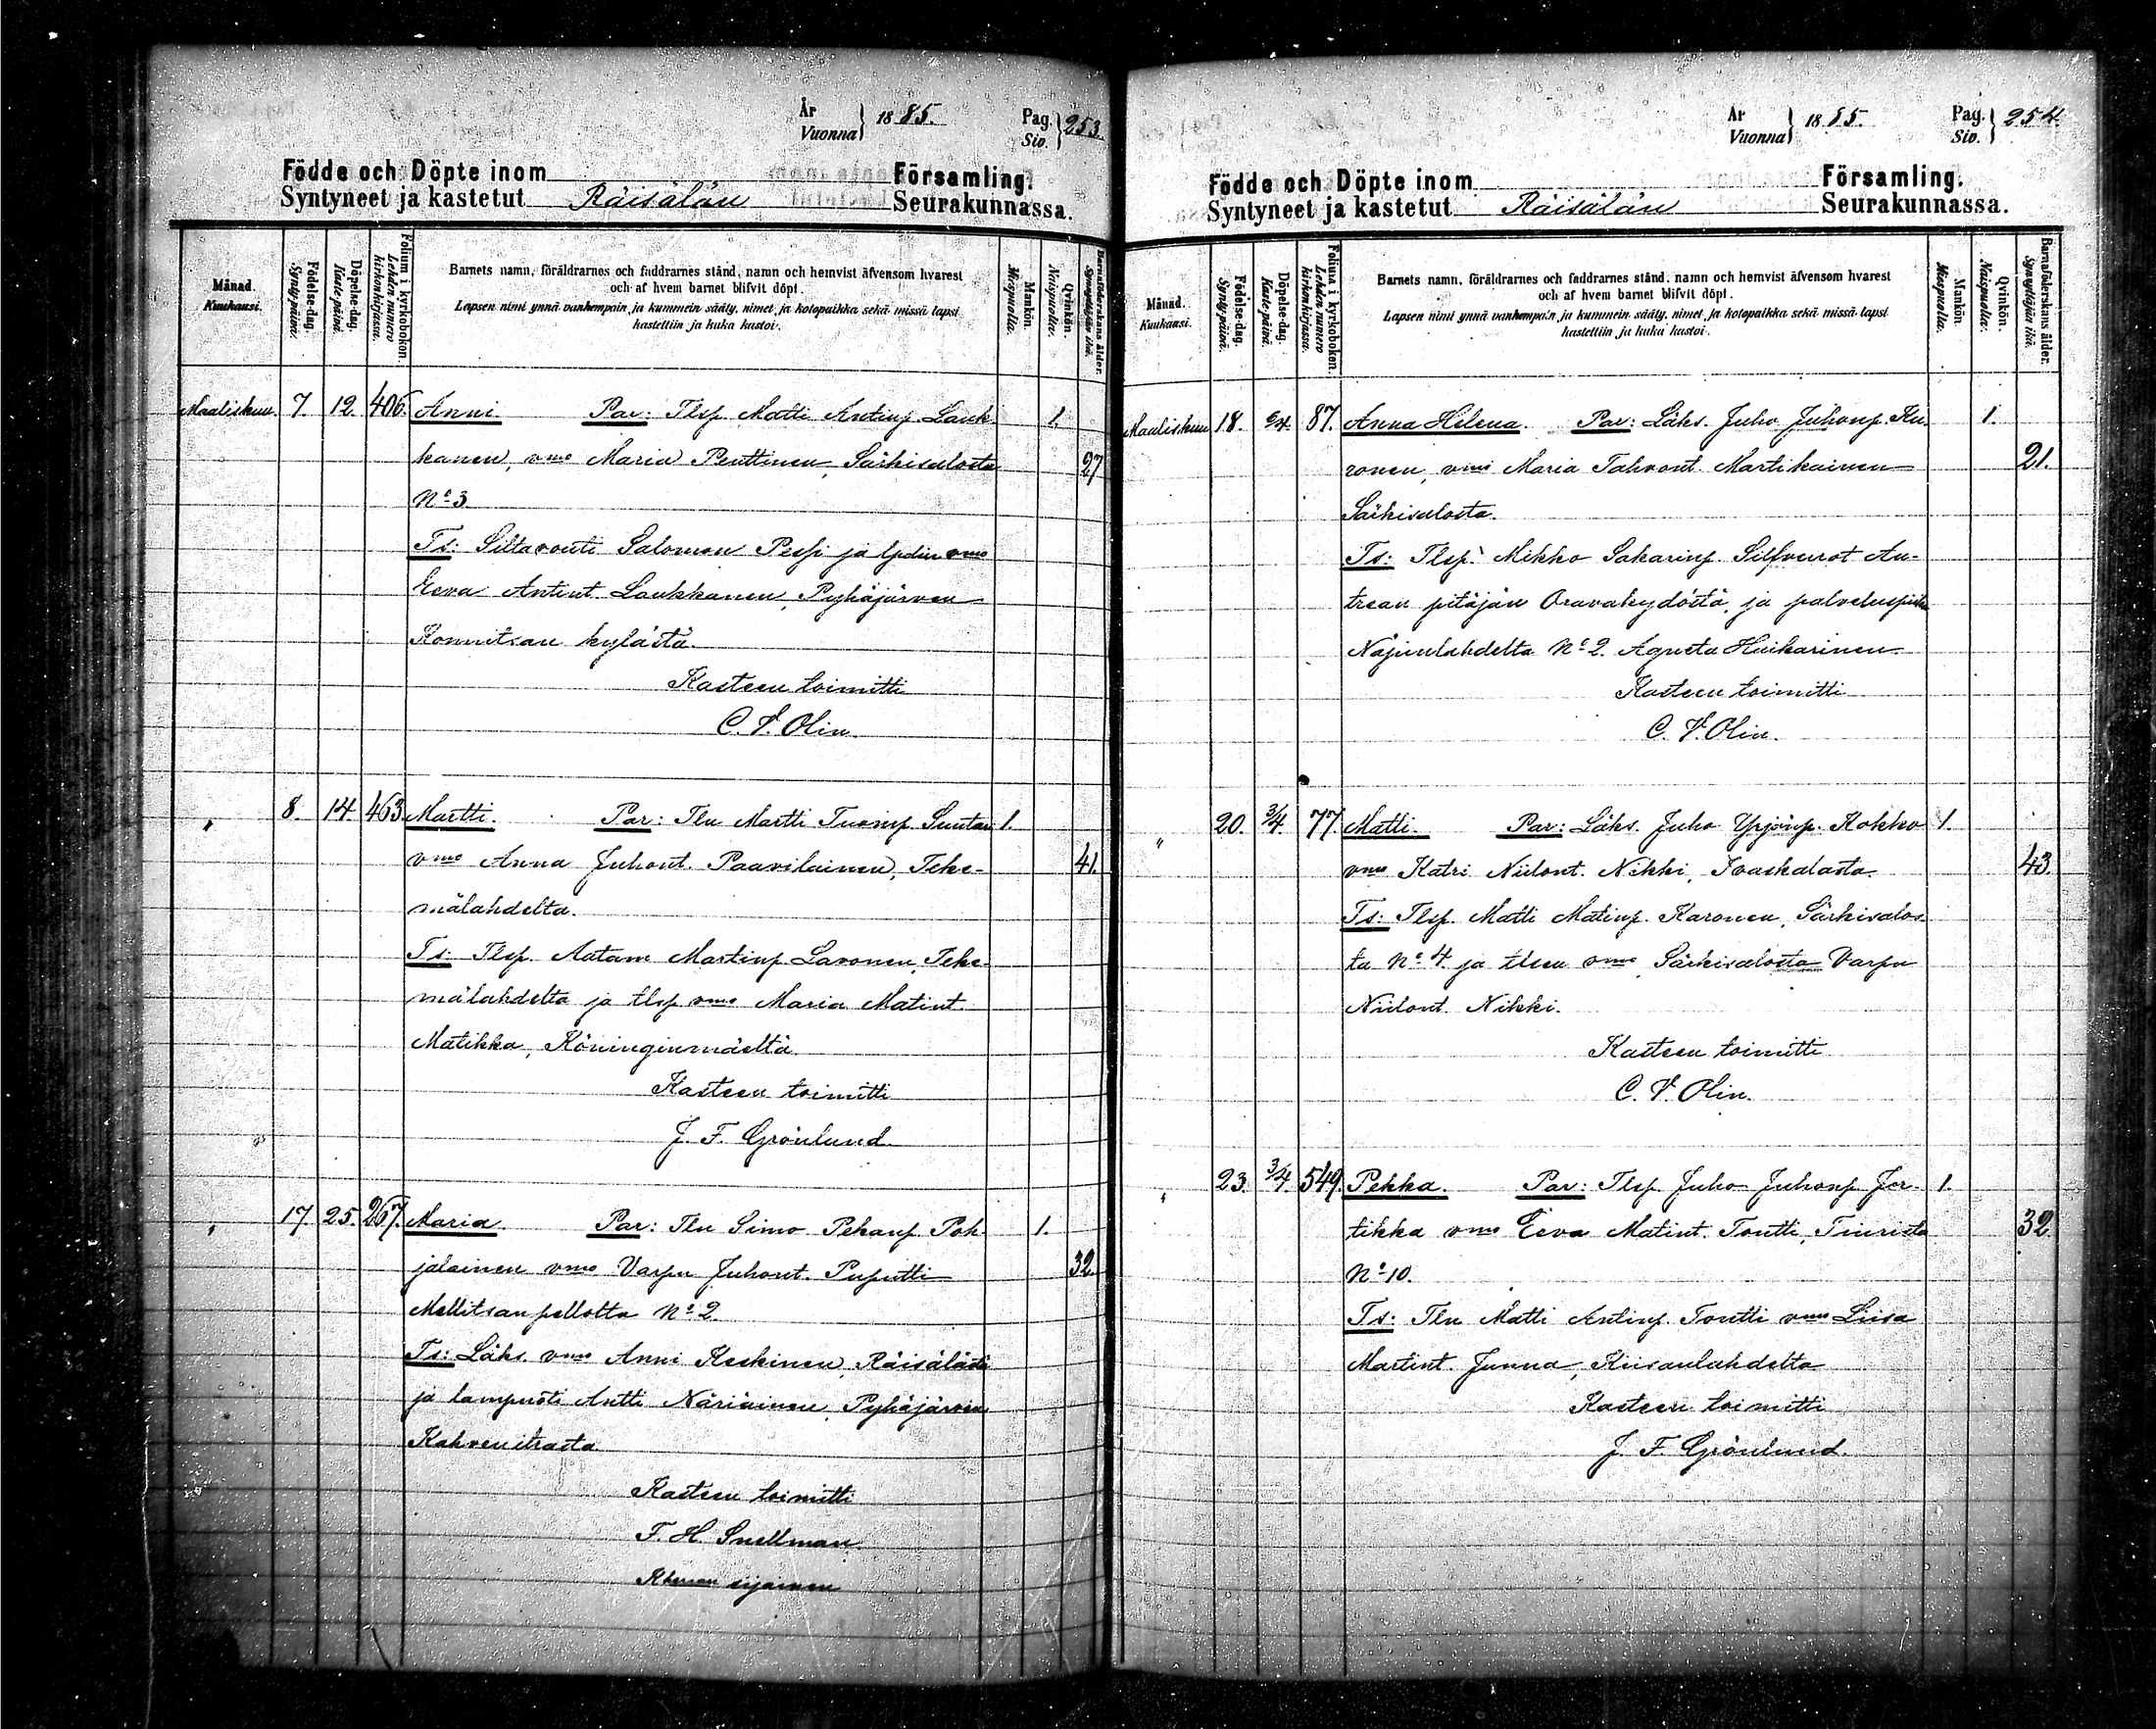 År
Vuonna } 1885.
Pag.
Siv. } 253.
Födde och Döpte inom Församling.
Syntyneet ja kastetut Räisälän Seurakunnassa.
Månad.
Kuukausi.
Födelse-dag.
Synty-päivä.
Döpelse-dag.
Kaste-päivä.
Folium i kyrkoboken.
Lehden numero kirkonkirjassa.
Barnets namn, föräldrarnes och faddrarnes stånd, namn och hemvist äfvensom hvarest
och af hvem barnet blifvit döpt.
Lapsen nimi ynnä vanhempain ja kummein sääty, nimet ja kotopaikka sekä missä lapsi
kastettiin ja kuka kastoi.
Mankön.
Miespuolta.
Qvinkön.
Naispuolta.
Barnaföderskans ålder.
Synnyttäjän ikä.
Maaliskuu 7. 12. 406. Anni. Par: Tlsp. Matti Antinp. Lauk- 1.
kanen, vmo Maria Penttinen, Särkisalosta 27
No 3.
Ts: Siltavouti Salomon Pessi ja lpdin vmo
Eeva Antint. Laukkanen, Pyhäjärven
Konnitsan kylästä.
Kasteen toimitti
C. V. Olin.
" 8. 14. 463. Martti. Par: Tln Martti Tuomp. Suntar 1.
vmo Anna Juhont. Paavilainen, Teke- 41.
mälahdelta.
Ts: Tlsp. Aatam Martinp. Lavonen, Teke-
mälahdelta ja tlsp vmo Maria Matint.
Matikka, Köninginmäeltä.
Kasteen toimitti
J. F. Grönlund.
" 17. 25. 267. Maria. Par: Tln Simo Pekanp. Poh- 1.
jalainen vmo Varpu Juhont. Puputti 32.
Mellitsanpellolta No 2.
Ts: Läks. vmo Anni Keskinen, Räisälästä
ja lampuoti Antti Näriäinen, Pyhäjärven
Kahvenitsasta
Kasteen toimitti
F. H. Snellman
sijainen
År
Vuonna } 1885.
Pag.
Siv. } 254.
Födde och Döpte inom Församling.
Syntyneet ja kastetut Räisälän Seurakunnassa.
Månad.
Kuukausi.
Födelse-dag.
Synty-päivä.
Döpelse-dag.
Kaste-päivä.
Folium i kyrkoboken.
Lehden numero kirkonkirjassa.
Barnets namn, föräldrarnes och faddrarnes stånd, namn och hemvist äfvensom hvarest
och af hvem barnet blifvit döpt.
Lapsen nimi ynnä vanhempain ja kummein sääty, nimet ja kotopaikka sekä missä lapsi
kastettiin ja kuka kastoi.
Mankön.
Miespuolta.
Qvinkön.
Naispuolta.
Barnaföderskans ålder.
Synnyttäjän ikä.
Maaliskuu 18. 87. Anna Helena. Par: Läks. Juho Juhonp. Ku- 1.
ronen, vmo Maria Tahvont. Martikainen 21.
Särkisalosta.
Ts: Tlsp. Mikko Sakarinp. Silfverot An-
trean pitäjän Oravakydöstä, ja palveluspiika
Näpinlahdelta No 2. Agneta Huikarinen
Kasteen toimitti
C. V. Olin.
" 20. 3/4. 77. Matti. Par: Läks. Juho Yrjönp. Kokko 1.
vmo Katri Niilont. Nikki, Ivaskalasta. 43.
Ts: Tlsp. Matti Matinp. Karonen, Särkisalos-
ta No 4. ja tlsen vmo Särkisalosta Varpu
Niilont. Nikki.
Kasteen toimitti
C. V. Olin.
" 23. 3/4. 549. Pekka. Par: Tlsp. Juho Juhonp. Jor- 1.
tikka vmo Eeva Matint. Tontti, Tiurista 32.
No 10.
Ts: Tln Matti Antinp. Tontti vmo Liisa
Martint. Junna, Kiisanlahdelta
Kasteen toimitti
J. F. Grönlund.